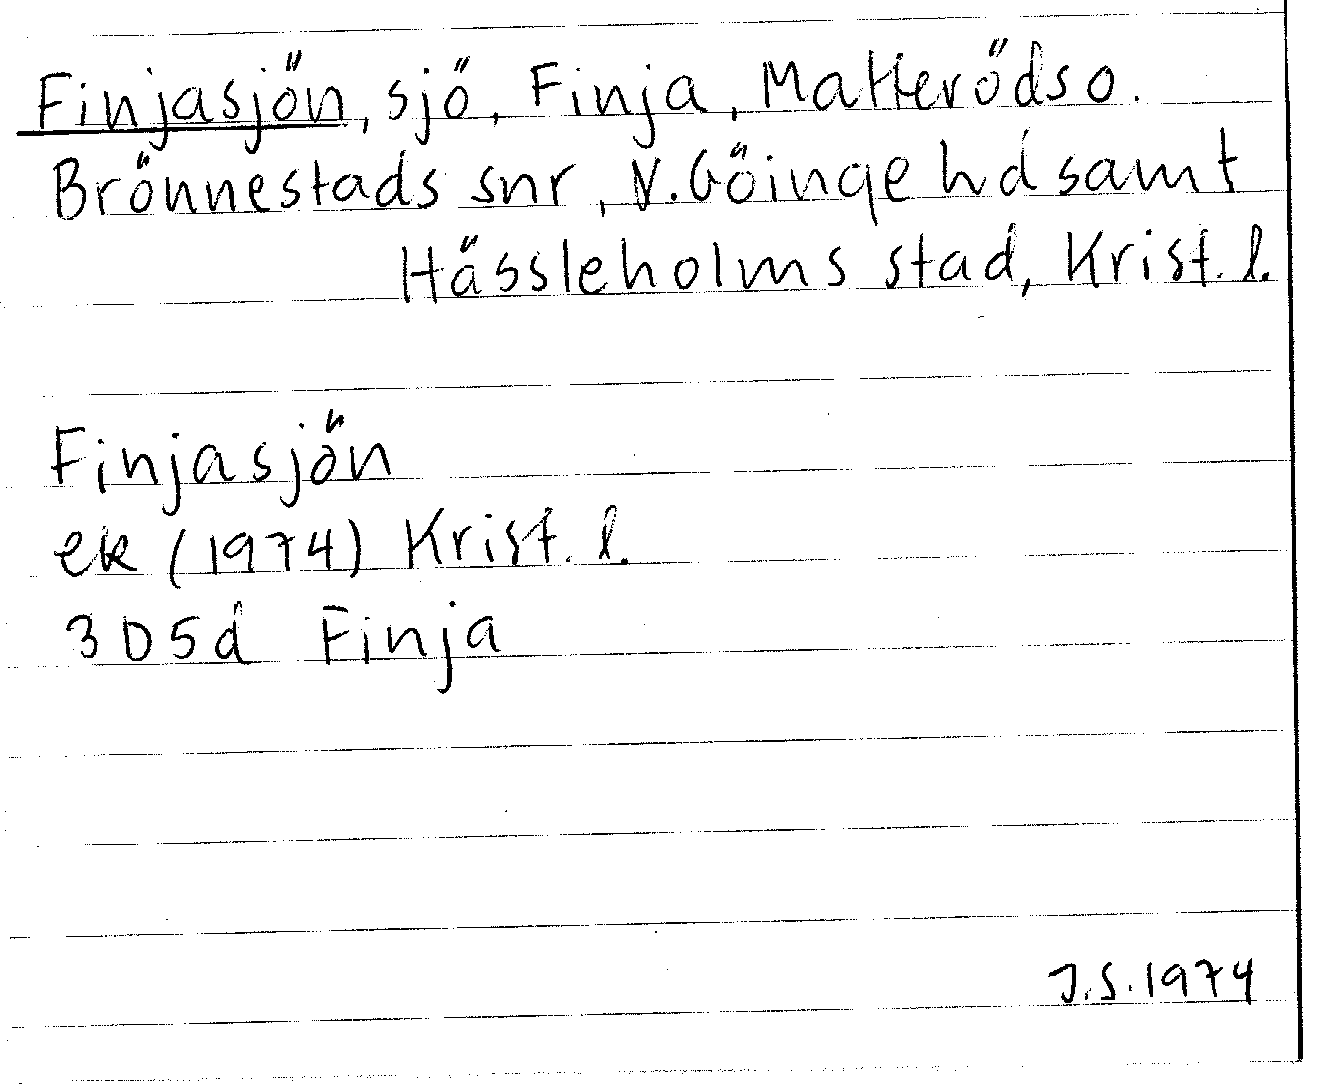 Finjasjön, sjö, Finja, Matteröds o.
Brönnestads snr, V. Göinge hd samt
Hässleholms stad, Krist. l.
Finjasjön
ek (1974) Krist. l.
3D5d Finja
J.S. 1974